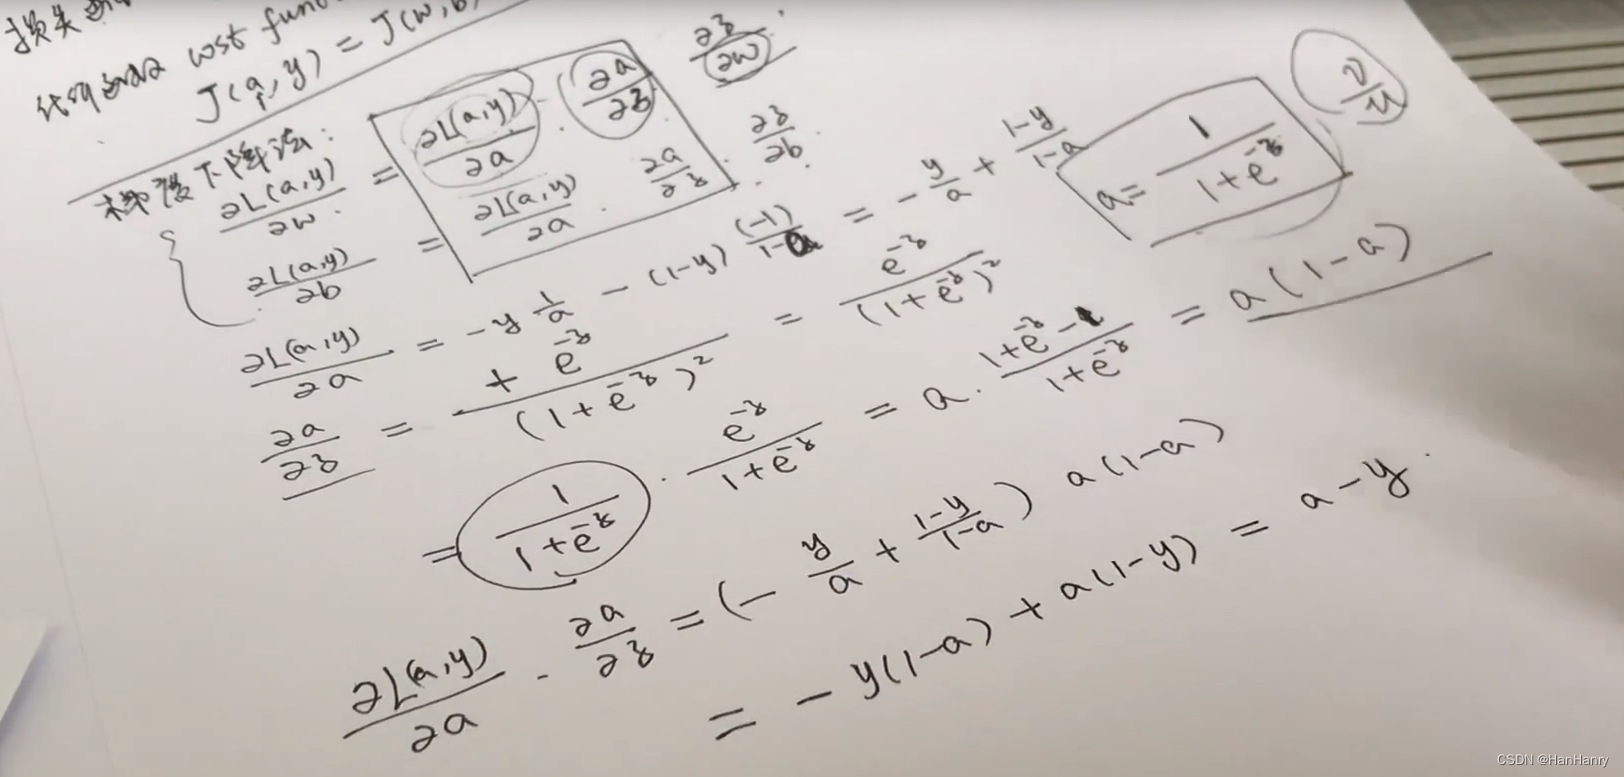 损失函
代价函数 cost func
J(a, y) = J(w, b)
梯度下降法:
∂L(a,y)/∂w = ∂L(a,y)/∂a · ∂a/∂z · ∂z/∂w
∂L(a,y)/∂b = ∂L(a,y)/∂a · ∂a/∂z · ∂z/∂b
a = 1/(1+e^-z)
v/u
∂L(a,y)/∂a = -y 1/a - (1-y) (-1)/(1-a) = - y/a + (1-y)/(1-a)
∂a/∂z = + e^-z/(1+e^-z)² = e^-z/(1+e^-z)²
= 1/(1+e^-z) · e^-z/(1+e^-z) = a · (1+e^-z-1)/(1+e^-z) = a(1-a)
∂L(a,y)/∂a · ∂a/∂z = (- y/a + (1-y)/(1-a)) a(1-a)
= - y(1-a) + a(1-y) = a - y.
CSDN @HanHanry